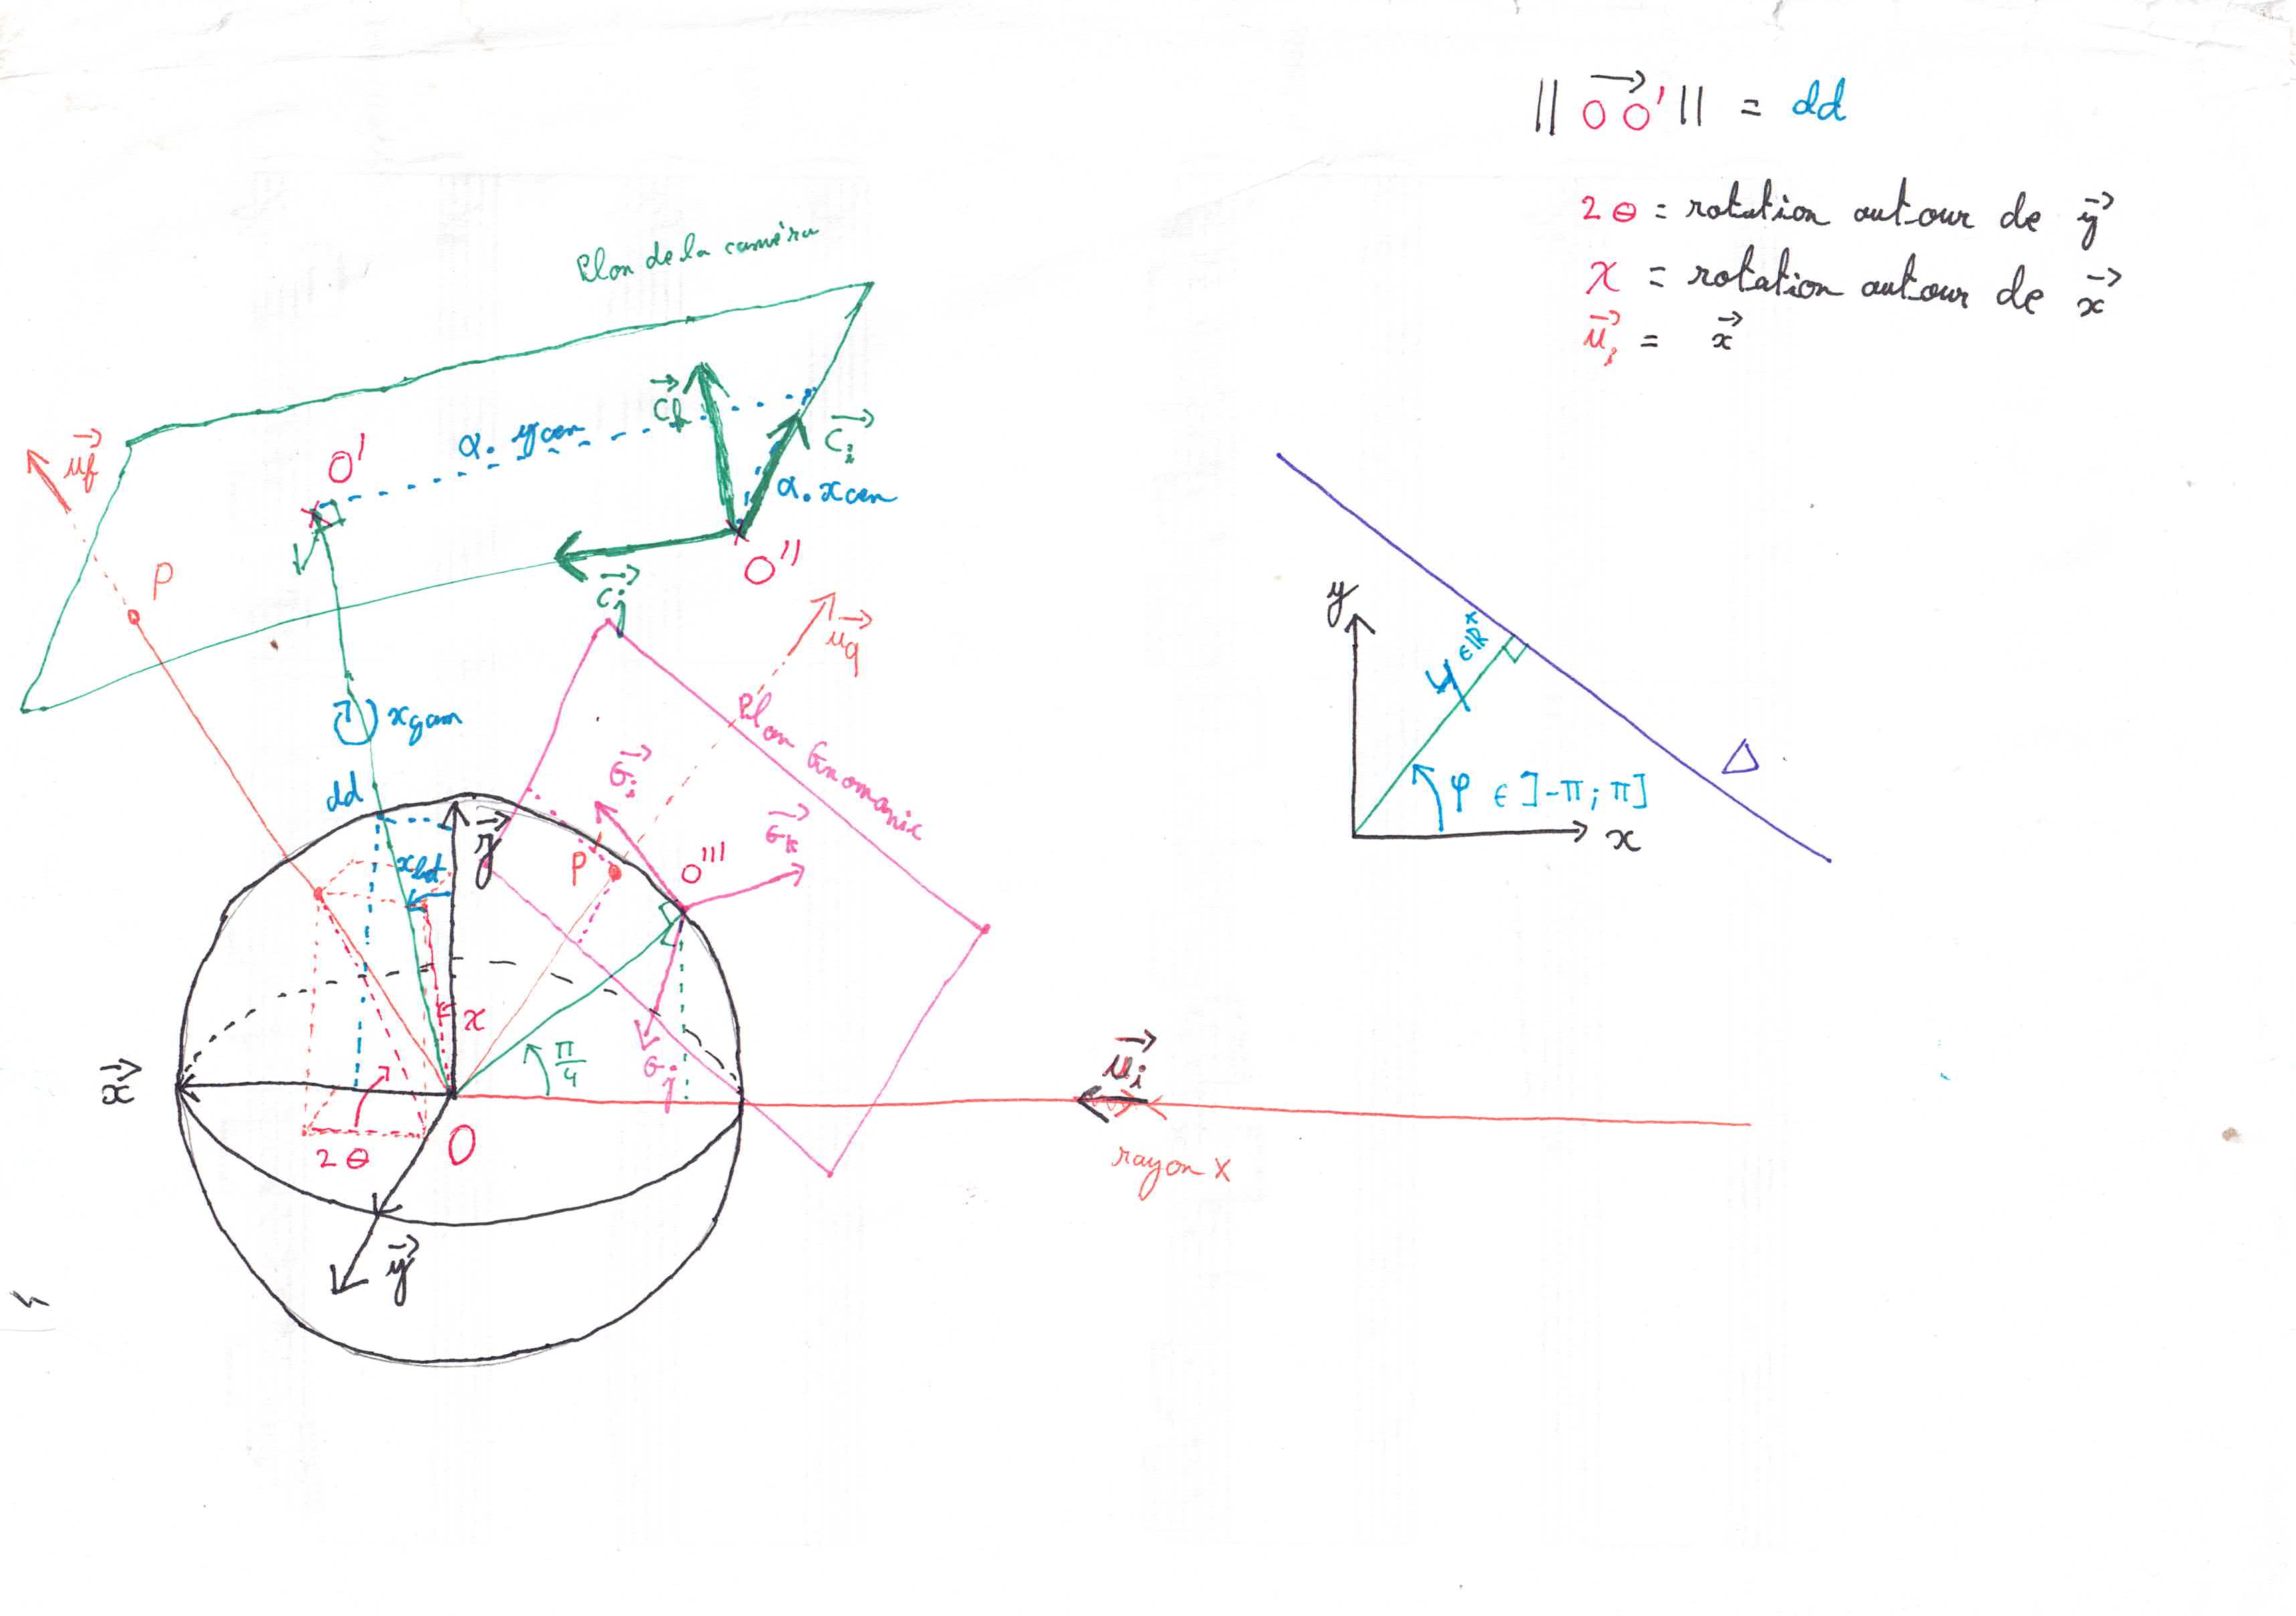 || OO' || = dd
2θ = rotation autour de y
χ = rotation autour de x
u_i = x
Plan de la caméra
C_k
C_i
α. ycen
α. xcen
u_f
O'
O''
P
C_j
u_q
xgam
Plan Gnomonic
G_i
G_k
dd
z
xbet
P
O'''
χ
π/4
G_j
x
u_i
O
2θ
rayon X
y
y
Ψ ∈ℝ+
Δ
φ ∈ ]-π; π]
x